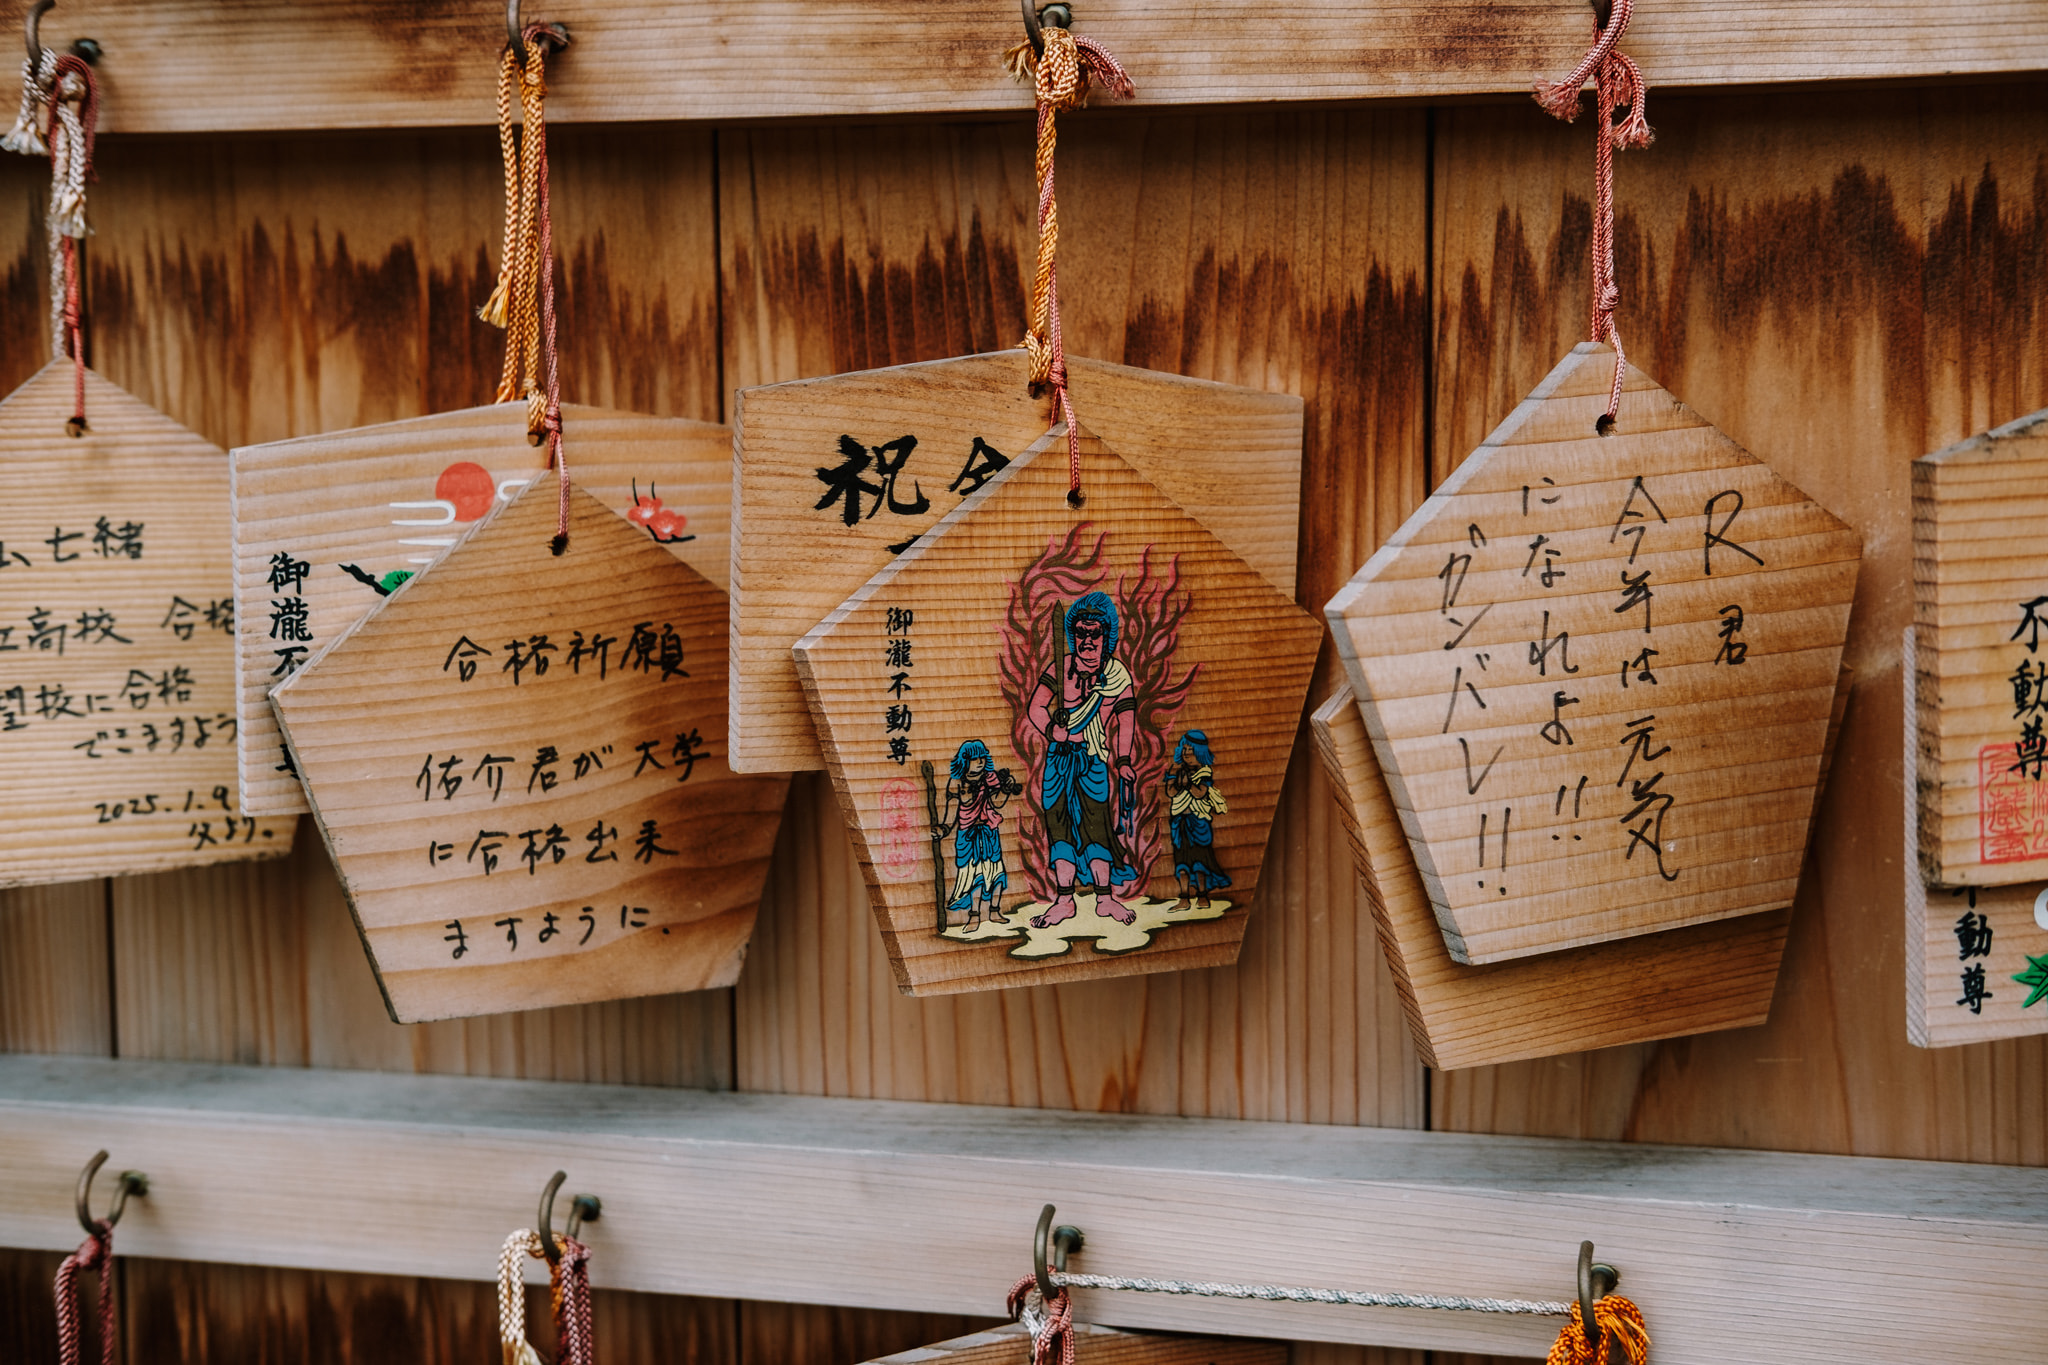 七緒
高校 合格
望校に合格
でさますよう
2025.1.9
父より。
御瀧不
合格祈願
佑介君が大学
に合格出来
ますように.
祝 合
御瀧不動尊
R君
今年は元気
になれよ!!
ガンバレ!!
不動尊
不動尊